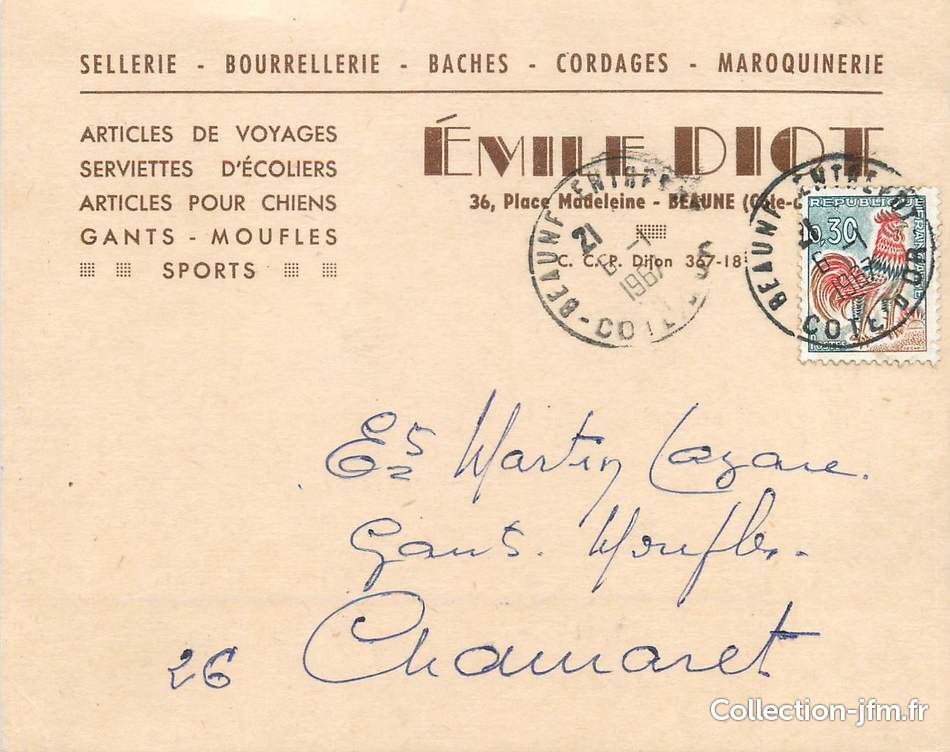 SELLERIE - BOURRELLERIE - BACHES - CORDAGES - MAROQUINERIE
ARTICLES DE VOYAGES
SERVIETTES D'ÉCOLIERS
ARTICLES POUR CHIENS
GANTS - MOUFLES
SPORTS
ÉMILE DIOT
36, Place Madeleine - BEAUNE
C. C. P. Dijon 367-18
BEAUNE ENTREPOT
21
6-1
1967
COTE
BEAUNE ENTREPOT
21
6-1
1967
COTE D'OR
RÉPUBLIQUE FRANÇAISE
0,30
Ets Martin Lazare.
Gants. Moufles.
26 Chamaret
Collection-jfm.fr